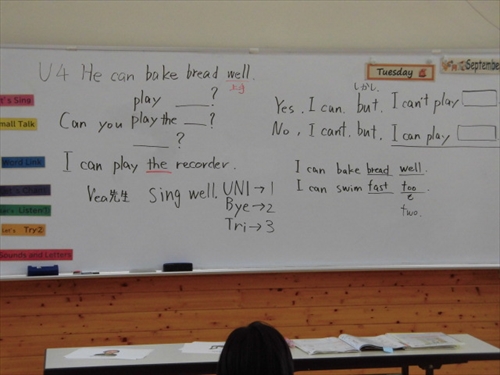 U4 He can bake bread well.
上手
play ___?
Can you play the ___?
___?
I can play the recorder.
Vea先生 Sing well.
UNI→1
Bye→2
Tri→3
Tuesday
September
しかし
Yes, I can. but. I can't play
No, I can't. but. I can play
I can bake bread well.
I can swim fast too.
e
two.
Let's Sing
Small Talk
Word Link
Let's Listen
Let's Try2
Sounds and Letters